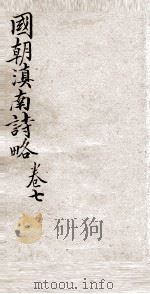 國朝滇南詩略 卷七
研狗
mtoou.info